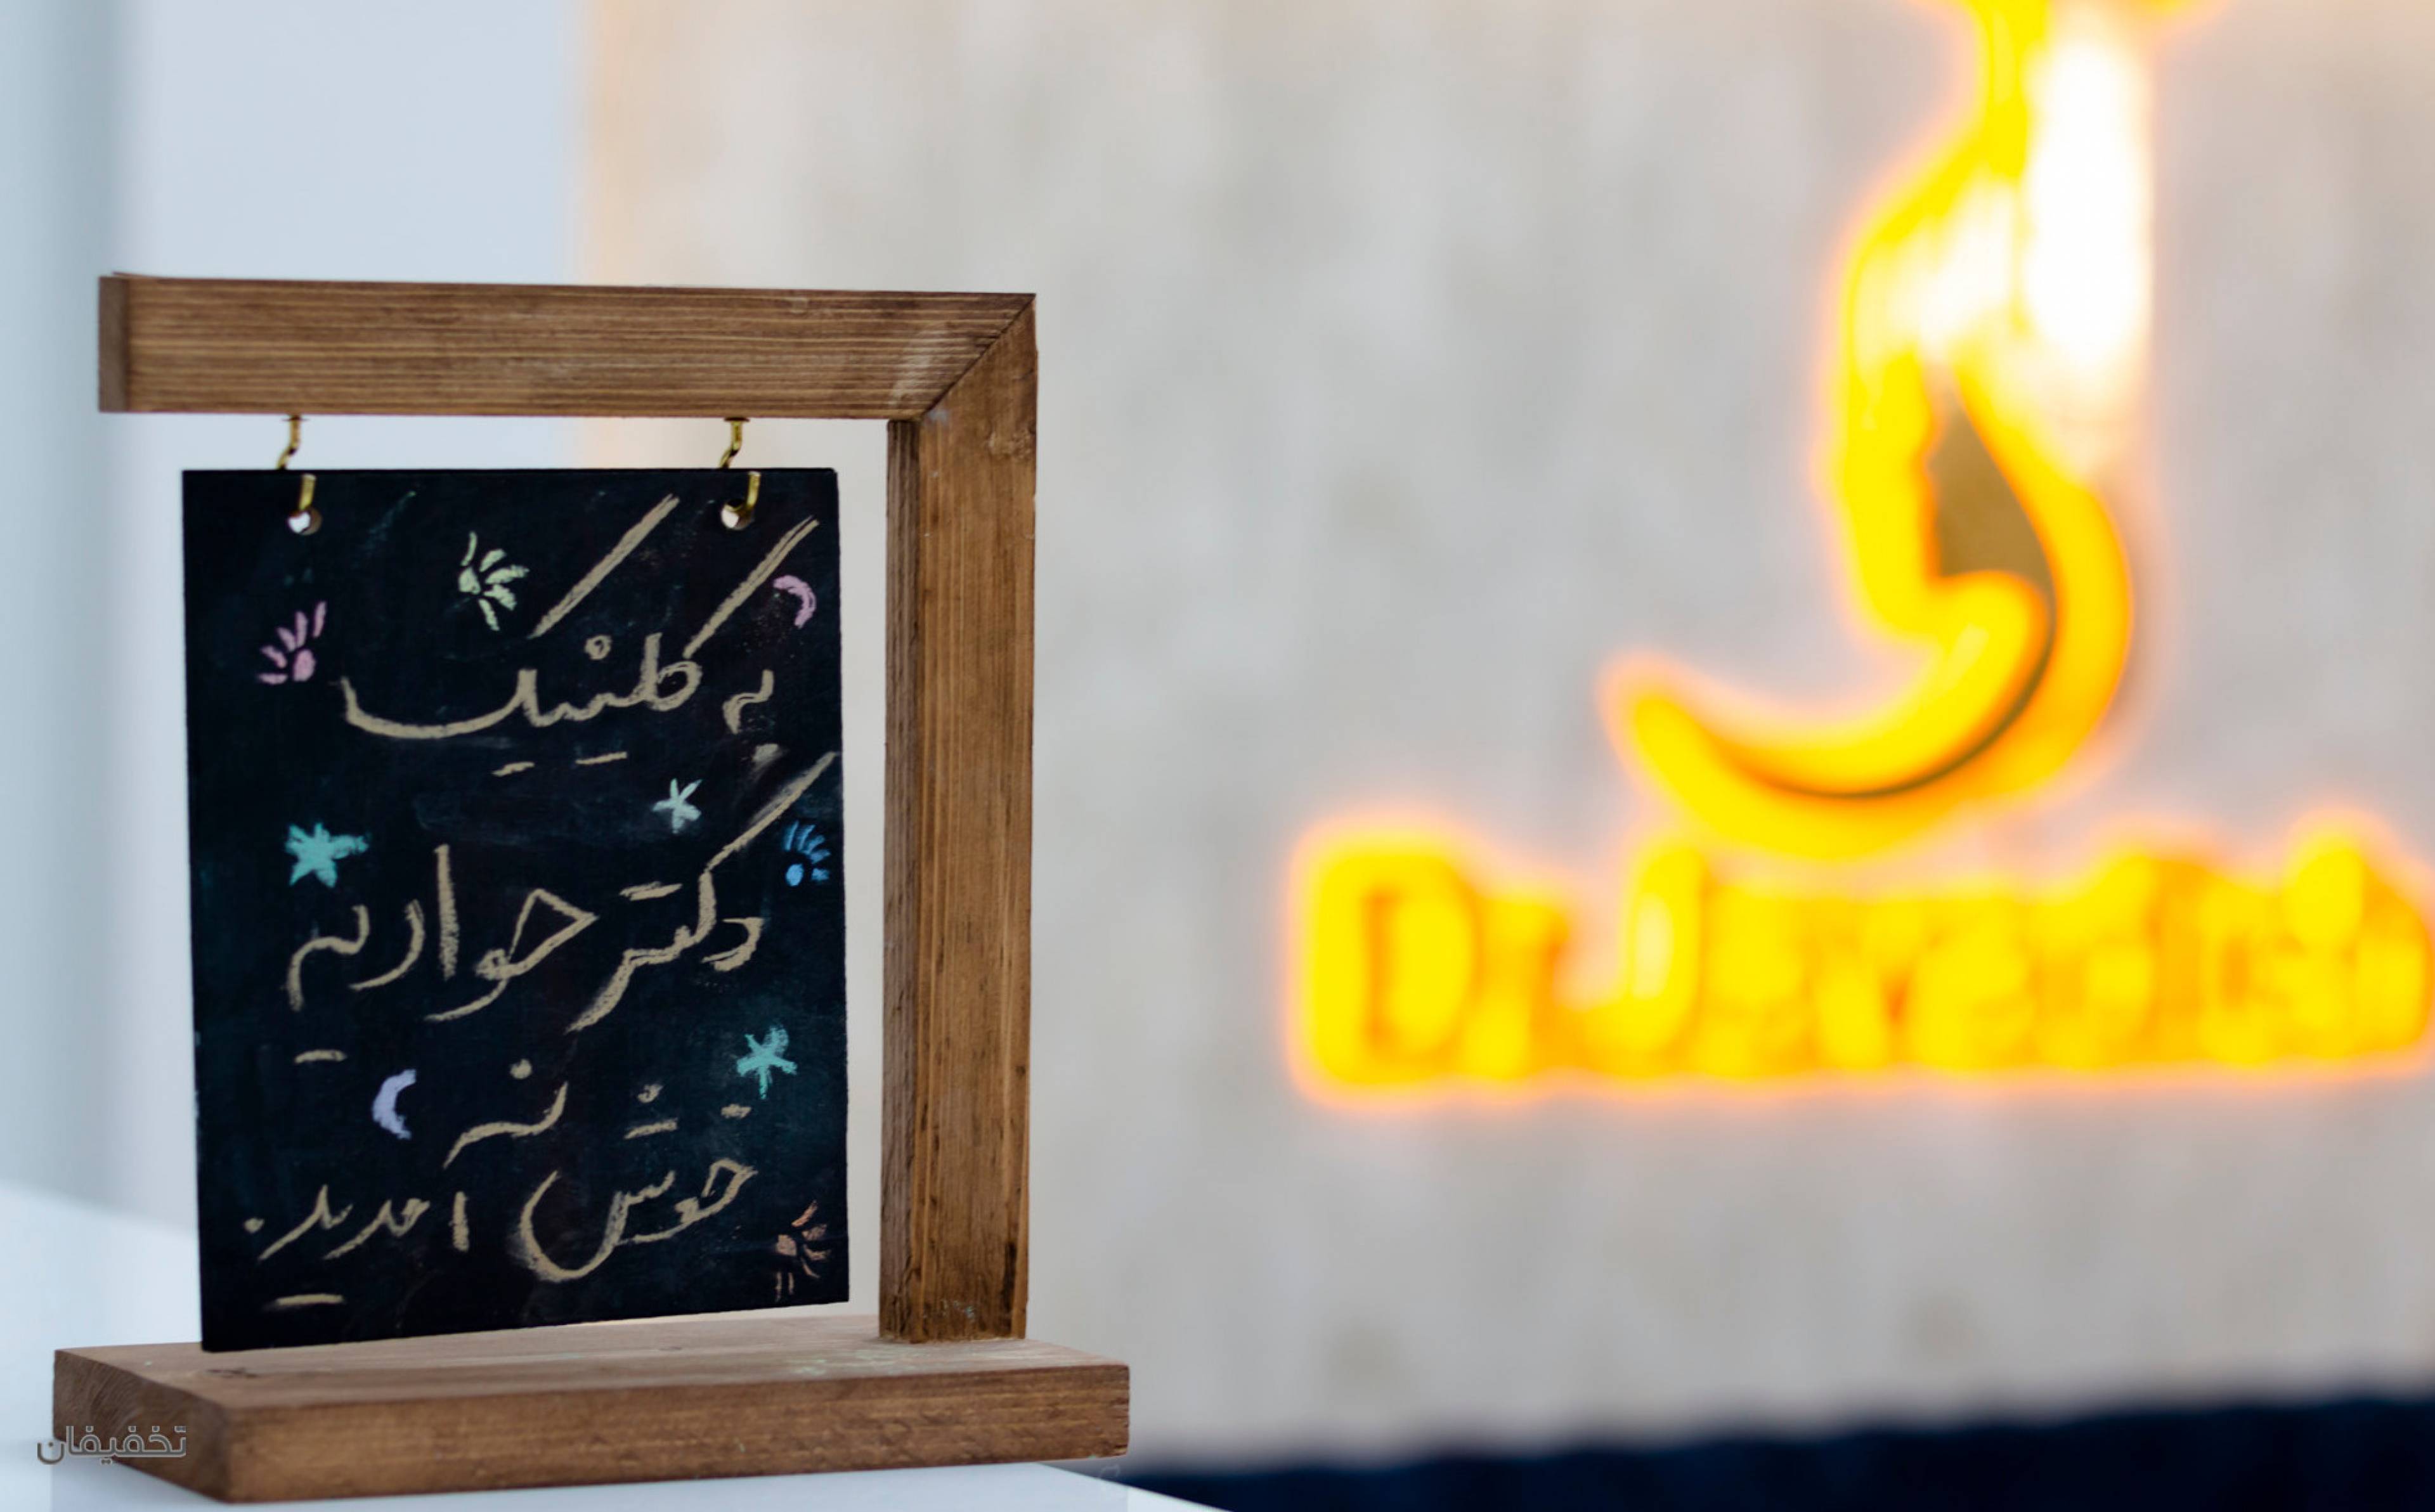 به کلینیک
دکتر جوادیه
خوش آمدید.
Dr.Javadieh
تخفیفان